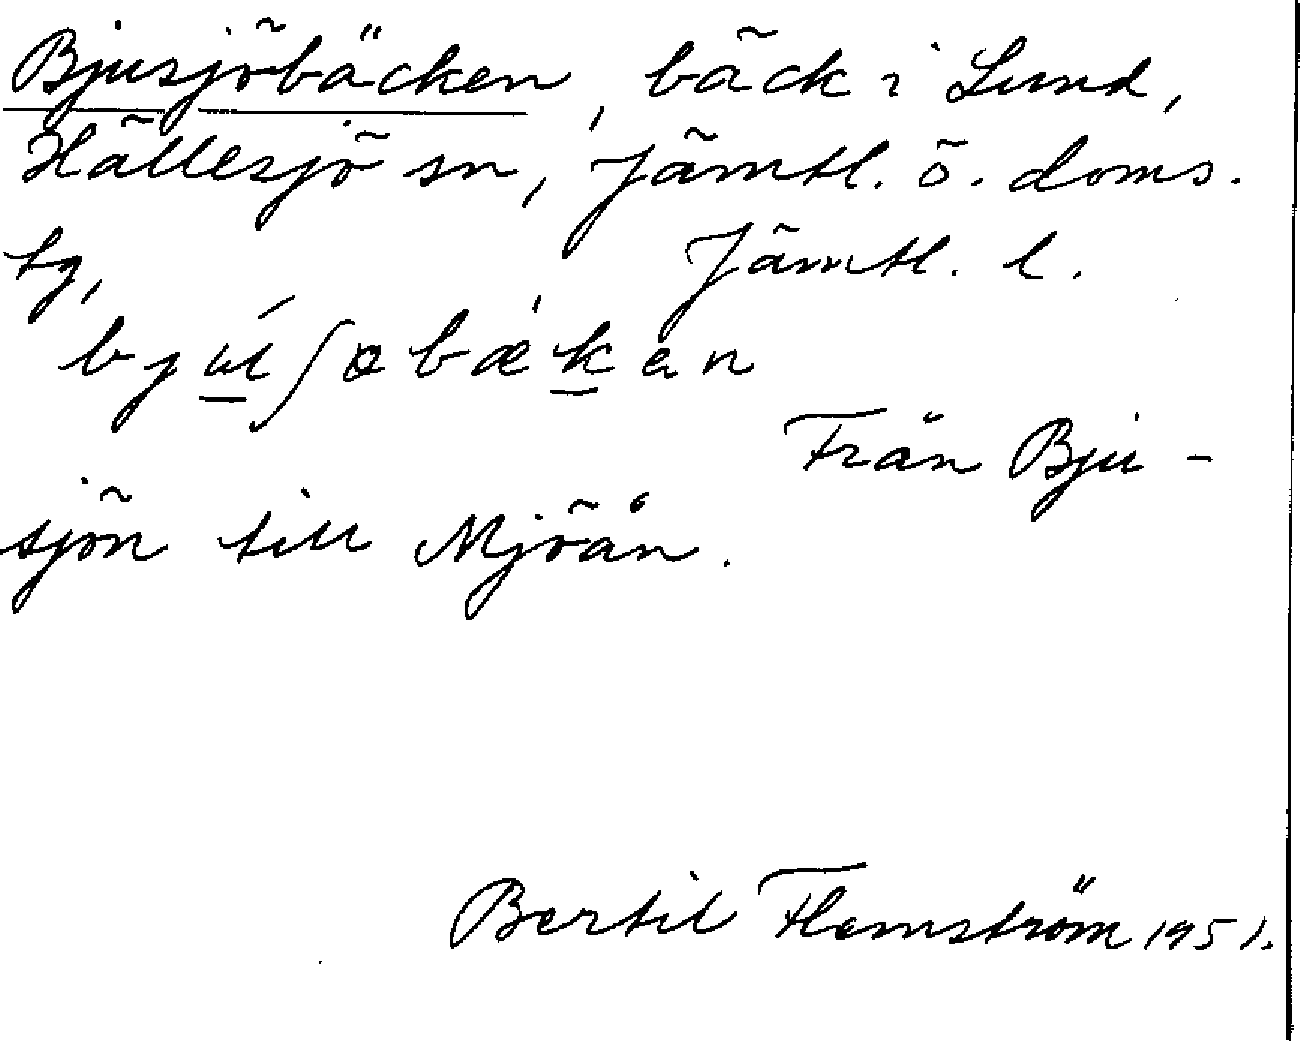 Bjusjöbäcken, bäck i Lund,
Hällesjö sn, Jämtl. ö. doms.
tg, Jämtl. l.
bjúʃəbækən
Från Bju-
sjön till Mjöån.
Bertil Flemström 1951.